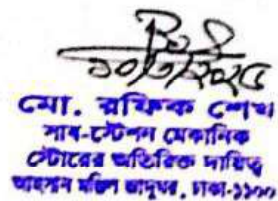 ১০/৩/২০২৫
মো. রফিক শেখ
সাব-স্টেশন মেকানিক
স্টোরের অতিরিক্ত দায়িত্ব
আহসান মঞ্জিল জাদুঘর, ঢাকা-১১০০